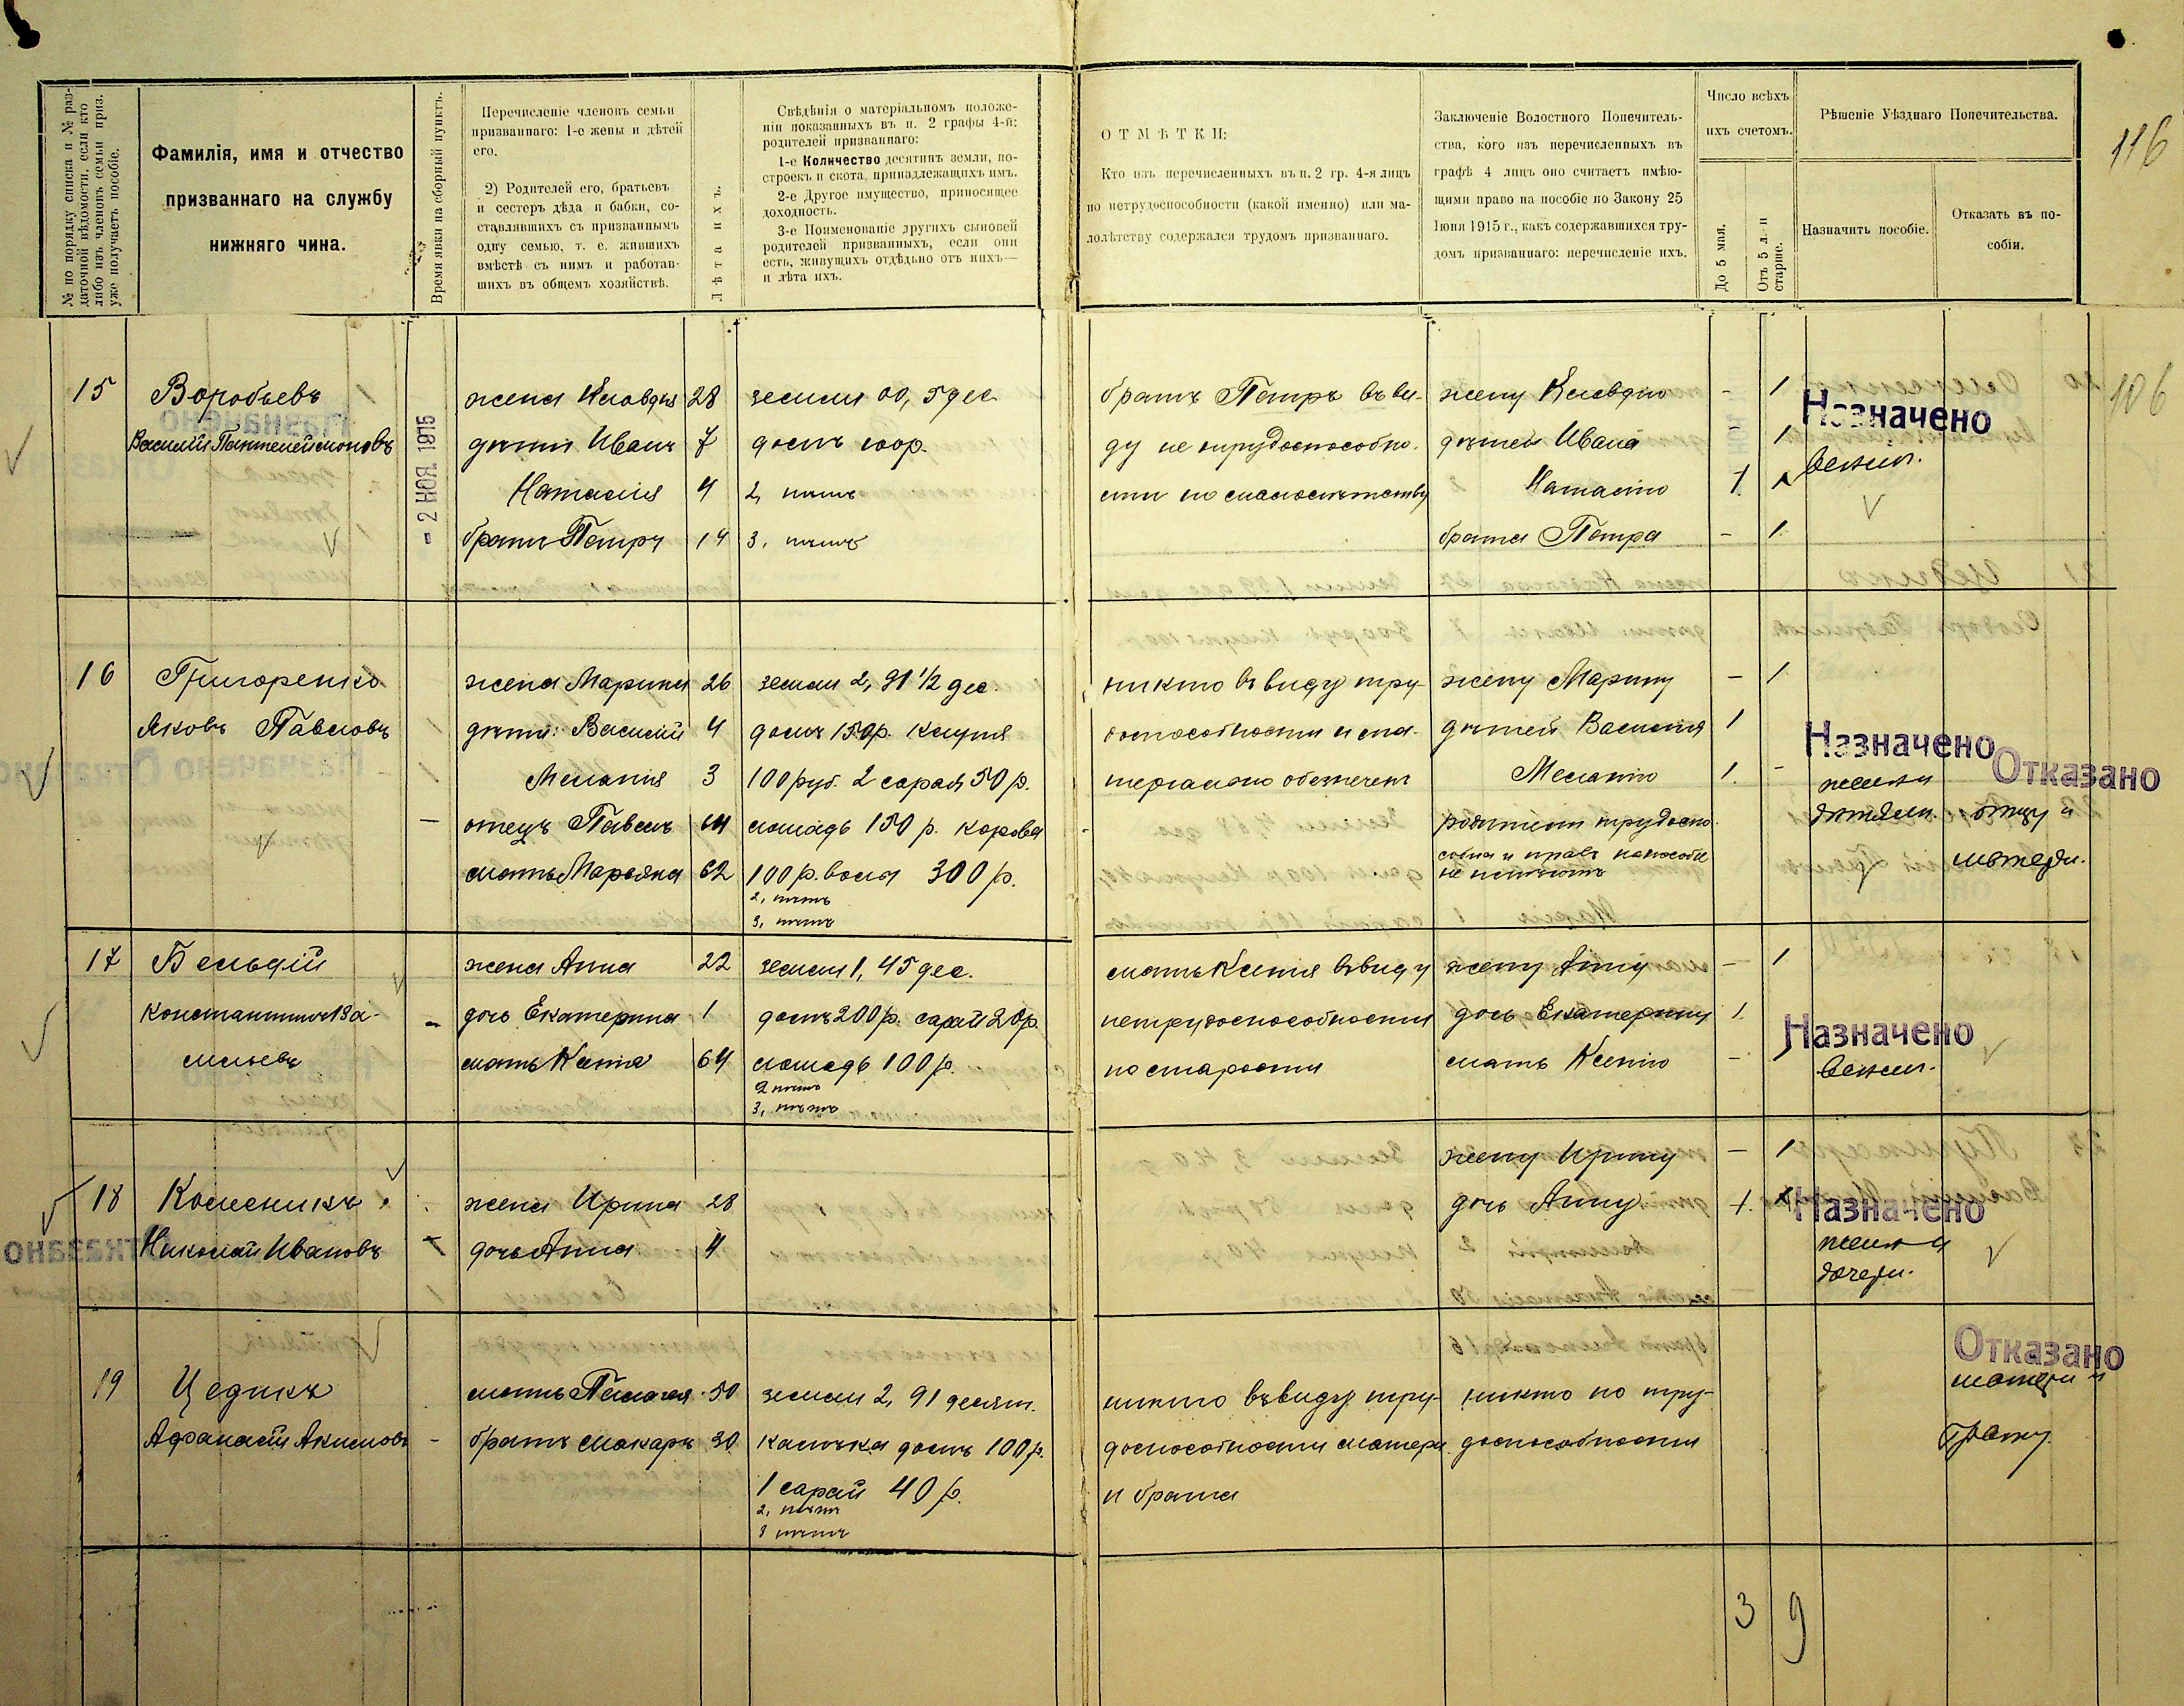 № по порядку списка и № раз-
даточной вѣдомости, если кто
либо изъ членовъ семьи приз.
уже получаетъ пособіе.
Фамилія, имя и отчество
призваннаго на службу
нижняго чина.
Время явки на сборный пунктъ.
Перечисленіе членовъ семьи
призваннаго: 1-е жены и дѣтей
его.
2) Родителей его, братьевъ
и сестеръ дѣда и бабки, со-
ставлявшихъ съ призваннымъ
одну семью, т. е. жившихъ
вмѣстѣ съ нимъ и работав-
шихъ въ общемъ хозяйствѣ.
Лѣта ихъ.
Свѣдѣнія о матеріальномъ положе-
ніи показанныхъ въ п. 2 графы 4-й:
родителей призваннаго:
1-е Количество десятинъ земли, по-
строекъ и скота, принадлежащихъ имъ.
2-е Другое имущество, приносящее
доходность.
3-е Поименованіе другихъ сыновей
родителей призванныхъ, если они
есть, живущихъ отдѣльно отъ нихъ—
и лѣта ихъ.
ОТМѢТКИ:
Кто изъ перечисленныхъ въ п. 2 гр. 4-я лицъ
по нетрудоспособности (какой именно) или ма-
лолѣтству содержался трудомъ призваннаго.
Заключеніе Волостного Попечитель-
ства, кого изъ перечисленныхъ въ
графѣ 4 лицъ оно считаетъ имѣю-
щими право на пособіе по Закону 25
Іюня 1915 г., какъ содержавшихся тру-
домъ призваннаго: перечисленіе ихъ.
Число всѣхъ
ихъ счетомъ.
До 5 мая.
Отъ 5 л. и
старше.
Рѣшеніе Уѣзднаго Попечительства.
Назначить пособіе.
Отказать въ по-
собіи.
116
106
15 Воробьевъ
Василій Пантелеймоновъ
- 2 НОЯ 1915
жена Клавдія 28
дѣти Иванъ 7
Наталія 4
братъ Петръ 14
земли 00,5 дес
домъ 100р.
2, нѣтъ
3, нѣтъ
братъ Петръ въ ви-
ду не трудоспособно-
сти по малолѣтству
жену Клавдію - 1
дѣтей Ивана - 1
Наталію 1
брата Петра - 1
Назначено
всѣмъ.
16 Григоренко
Яковъ Павловъ
жена Марина 26
дѣти: Василій 4
Меланія 3
отецъ Павелъ 64
мать Марьяна 62
земли 2, 91 1/2 дес.
домъ 150р. клуня
100 руб. 2 сарая 50 р.
лошадь 150 р. корова
100 р. вола 300 р.
2, нѣтъ
3, нѣтъ
никто въ виду тру-
доспособности и ма-
теріально обезпечены
жену Марину - 1
дѣтей Василія 1
Меланію 1. -
родители трудоспо-
собны и правъ на пособіе
не имѣютъ
Назначено
женѣ и
дѣтямъ.
Отказано
отцу и
матери.
17 Бельдій
Константинъ Ва-
сильевъ
жена Анна 22
дочь Екатерина 1
мать Ксенія 64
земли 1, 45 дес.
домъ 200 р. сарай 20 р.
лошадь 100 р.
2 нѣтъ
3, нѣтъ
мать Ксенія въ виду
нетрудоспособности
по старости
жену Анну - 1
дочь Екатерину 1.
мать Ксенію - 1
Назначено
всѣмъ.
18 Колесникъ
Николай Ивановъ
жена Ирина 28
дочь Анна 4
жену Ирину - 1
дочь Анну 1.
Назначено
женѣ и
дочери.
19 Цедикъ
Афанасій Акимовъ
мать Пелагея 50
братъ Макаръ 30
земли 2, 91 десят.
домъ 100 р.
1 сарай 40 р.
2, нѣтъ
3 нѣтъ
никто въ виду тру-
доспособности матери
и брата
никто по тру-
доспособности
Отказано
матери и
брату.
3 9